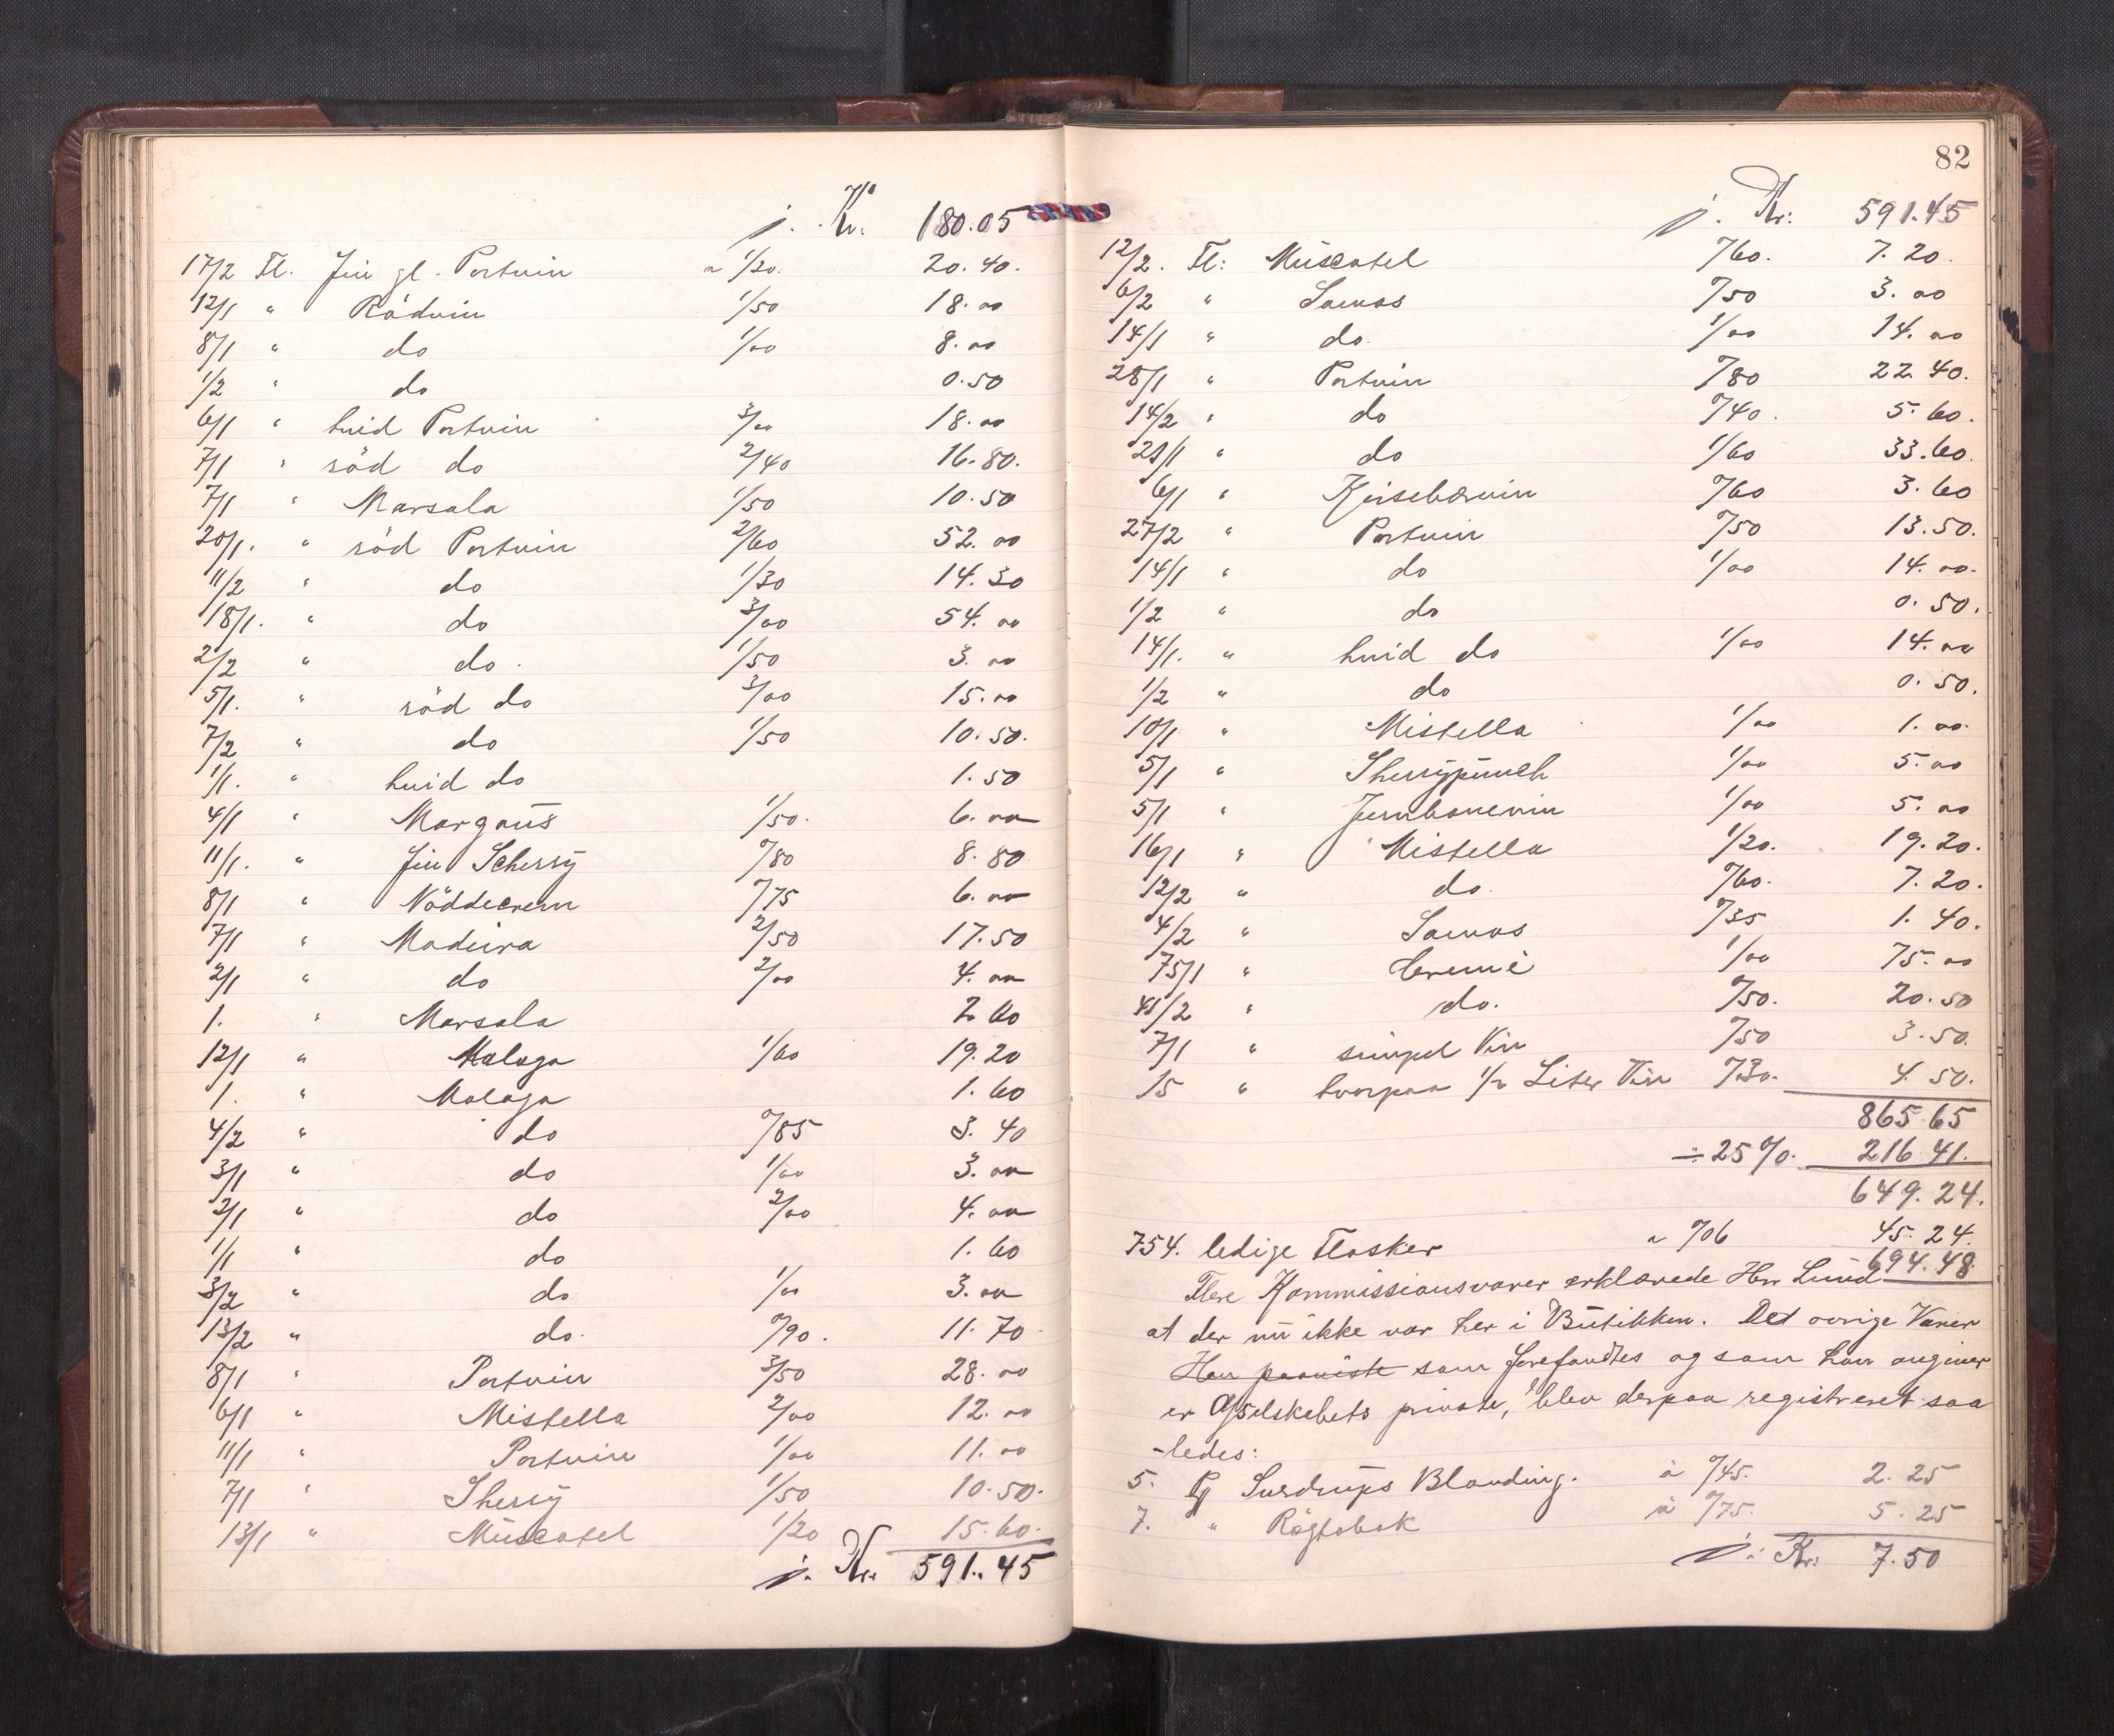 j. Kr. 180.05
17/2 Fl. Fin gl. Portvin a 1/20. 20.40.
12/1 " Rödvin 1/50 18.00
8/1 " do 1/00 8.00
1/2 " do 0.50
6/1 " hvid Portvin 3/00 18.00
7/1 " röd do 2/40 16.80.
7/1 " Marsala 1/50 10.50
20/1. " röd Portvin 2/60 52.00
11/2 " do 1/30 14.30
18/1. " do 3/00 54.00
2/2 " do. 1/50 3.00
5/1. " röd do 3/00 15.00
7/2 " do 1/50 10.50.
1/1. " hvid do 1.50
4/1 " Margaus 1/50. 6.00
11/1. " Fin Scherry 0/80 8.80
8/1 " Nöddecrem 0/75 6.00
7/1 " Madeira 2/50 17.50
2/1 " do 2/00 4.00
1. " Marsala 2.60
12/1 " Malaga 1/60 19.20
1. " Malaga 1.60
4/2 " do 0/85 3.40
3/1 " do 1/00 3.00
2/1 " do 2/00 4.00
1/1 " do 1.60
3/2 " do 1/00 3.00
13/2 " do. 0/90. 11.70
8/1 " Portvin 3/50 28.00
6/1 " Mistella 2/00 12.00
11/1 " Portvin 1/00 11.00
7/1 " Sherry 1/50 10.50.
13/1 " Muscatel 1/20 15.60.
j. Kr. 591.45
82
j. Kr: 591.45
12/2. Fl: Muscatel 0/60. 7.20.
6/2 " Samos 0/50 3.00
14/1 " do. 1/00 14.00
28/1 " Portvin 0/80 22.40.
14/2 " do 0/40. 5.60.
21/1 " do 1/60 33.60.
6/1 " Kirsebærvin 0/60 3.60
27/2 " Portvin 0/50 13.50.
14/1 " do 1/00 14.00.
1/2 " do 0.50.
14/1. " hvid do 1/00 14.00
1/2 " do 0.50.
10/1 " Mistella 1/00 1.00.
5/1 " Sherrypunch 1/00 5.00
5/1 " 1/00 5.00
16/1 " Mistella 1/20. 19.20.
12/2 " do. 0/60. 7.20.
4/2 " Samos 0/35 1.40.
75/1 " Cremé 1/00 75.00
41/2 " do. 0/50. 20.50
7/1 " simpel Vin 0/50 3.50.
15 " hvorpaa 1/2 Liter Vin 0/30. 4.50.
865.65
÷ 25 %. 216.41.
649.24.
754. ledige Flasker a 0/06 45.24.
694.48
Flere Kommissionsvarer erklærede Herr Lund
at der nu ikke var her i Butikken. Det øvrige Varer
Han paaviste som forefandtes og som han angiver
er Afselskebets private, blev derpaa registreret saa
-ledes:
5. Pg Sverdrups Blanding. à 0/45. 2.25
7. " Rögtobak à 0/75. 5.25
j. Kr: 7.50